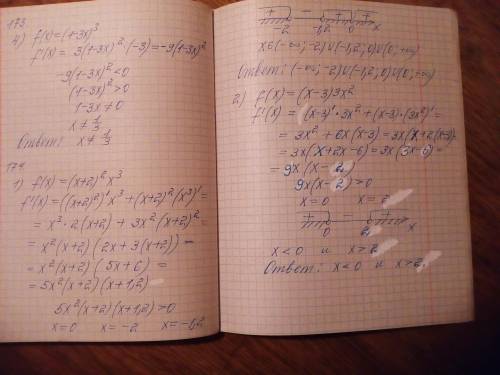 173
4) f(x)=(1-3x)³
f'(x) = 3(1-3x)²·(-3)=-9(1-3x)²
-9(1-3x)²<0
(1-3x)²>0
1-3x≠0
x≠1/3
Ответ: x≠1/3
174
1) f(x)=(x+2)²x³
f'(x)=((x+2)²)'x³+(x+2)²(x³)'=
= x³·2(x+2) + 3x²(x+2)²=
= x²(x+2)(2x+3(x+2))=
= x²(x+2)(5x+6) =
= 5x²(x+2)(x+1,2)
5x²(x+2)(x+1,2)>0
x=0 x=-2 x=-1,2
+ - + +
-2 -1,2 0 x
x∈(-∞;-2)∪(-1,2;0)∪(0;+∞)
Ответ: (-∞;-2)∪(-1,2;0)∪(0;+∞)
2) f(x)=(x-3)3x²
f'(x) = (x-3)'·3x²+(x-3)·(3x²)'=
= 3x²+6x(x-3)=3x(x+2(x-3))
= 3x(x+2x-6)=3x(3x-6)=
= 9x(x-2)
9x(x-2)>0
x=0 x=2
+ - +
0 2 x
x<0 и x>2
Ответ: x<0 и x>2